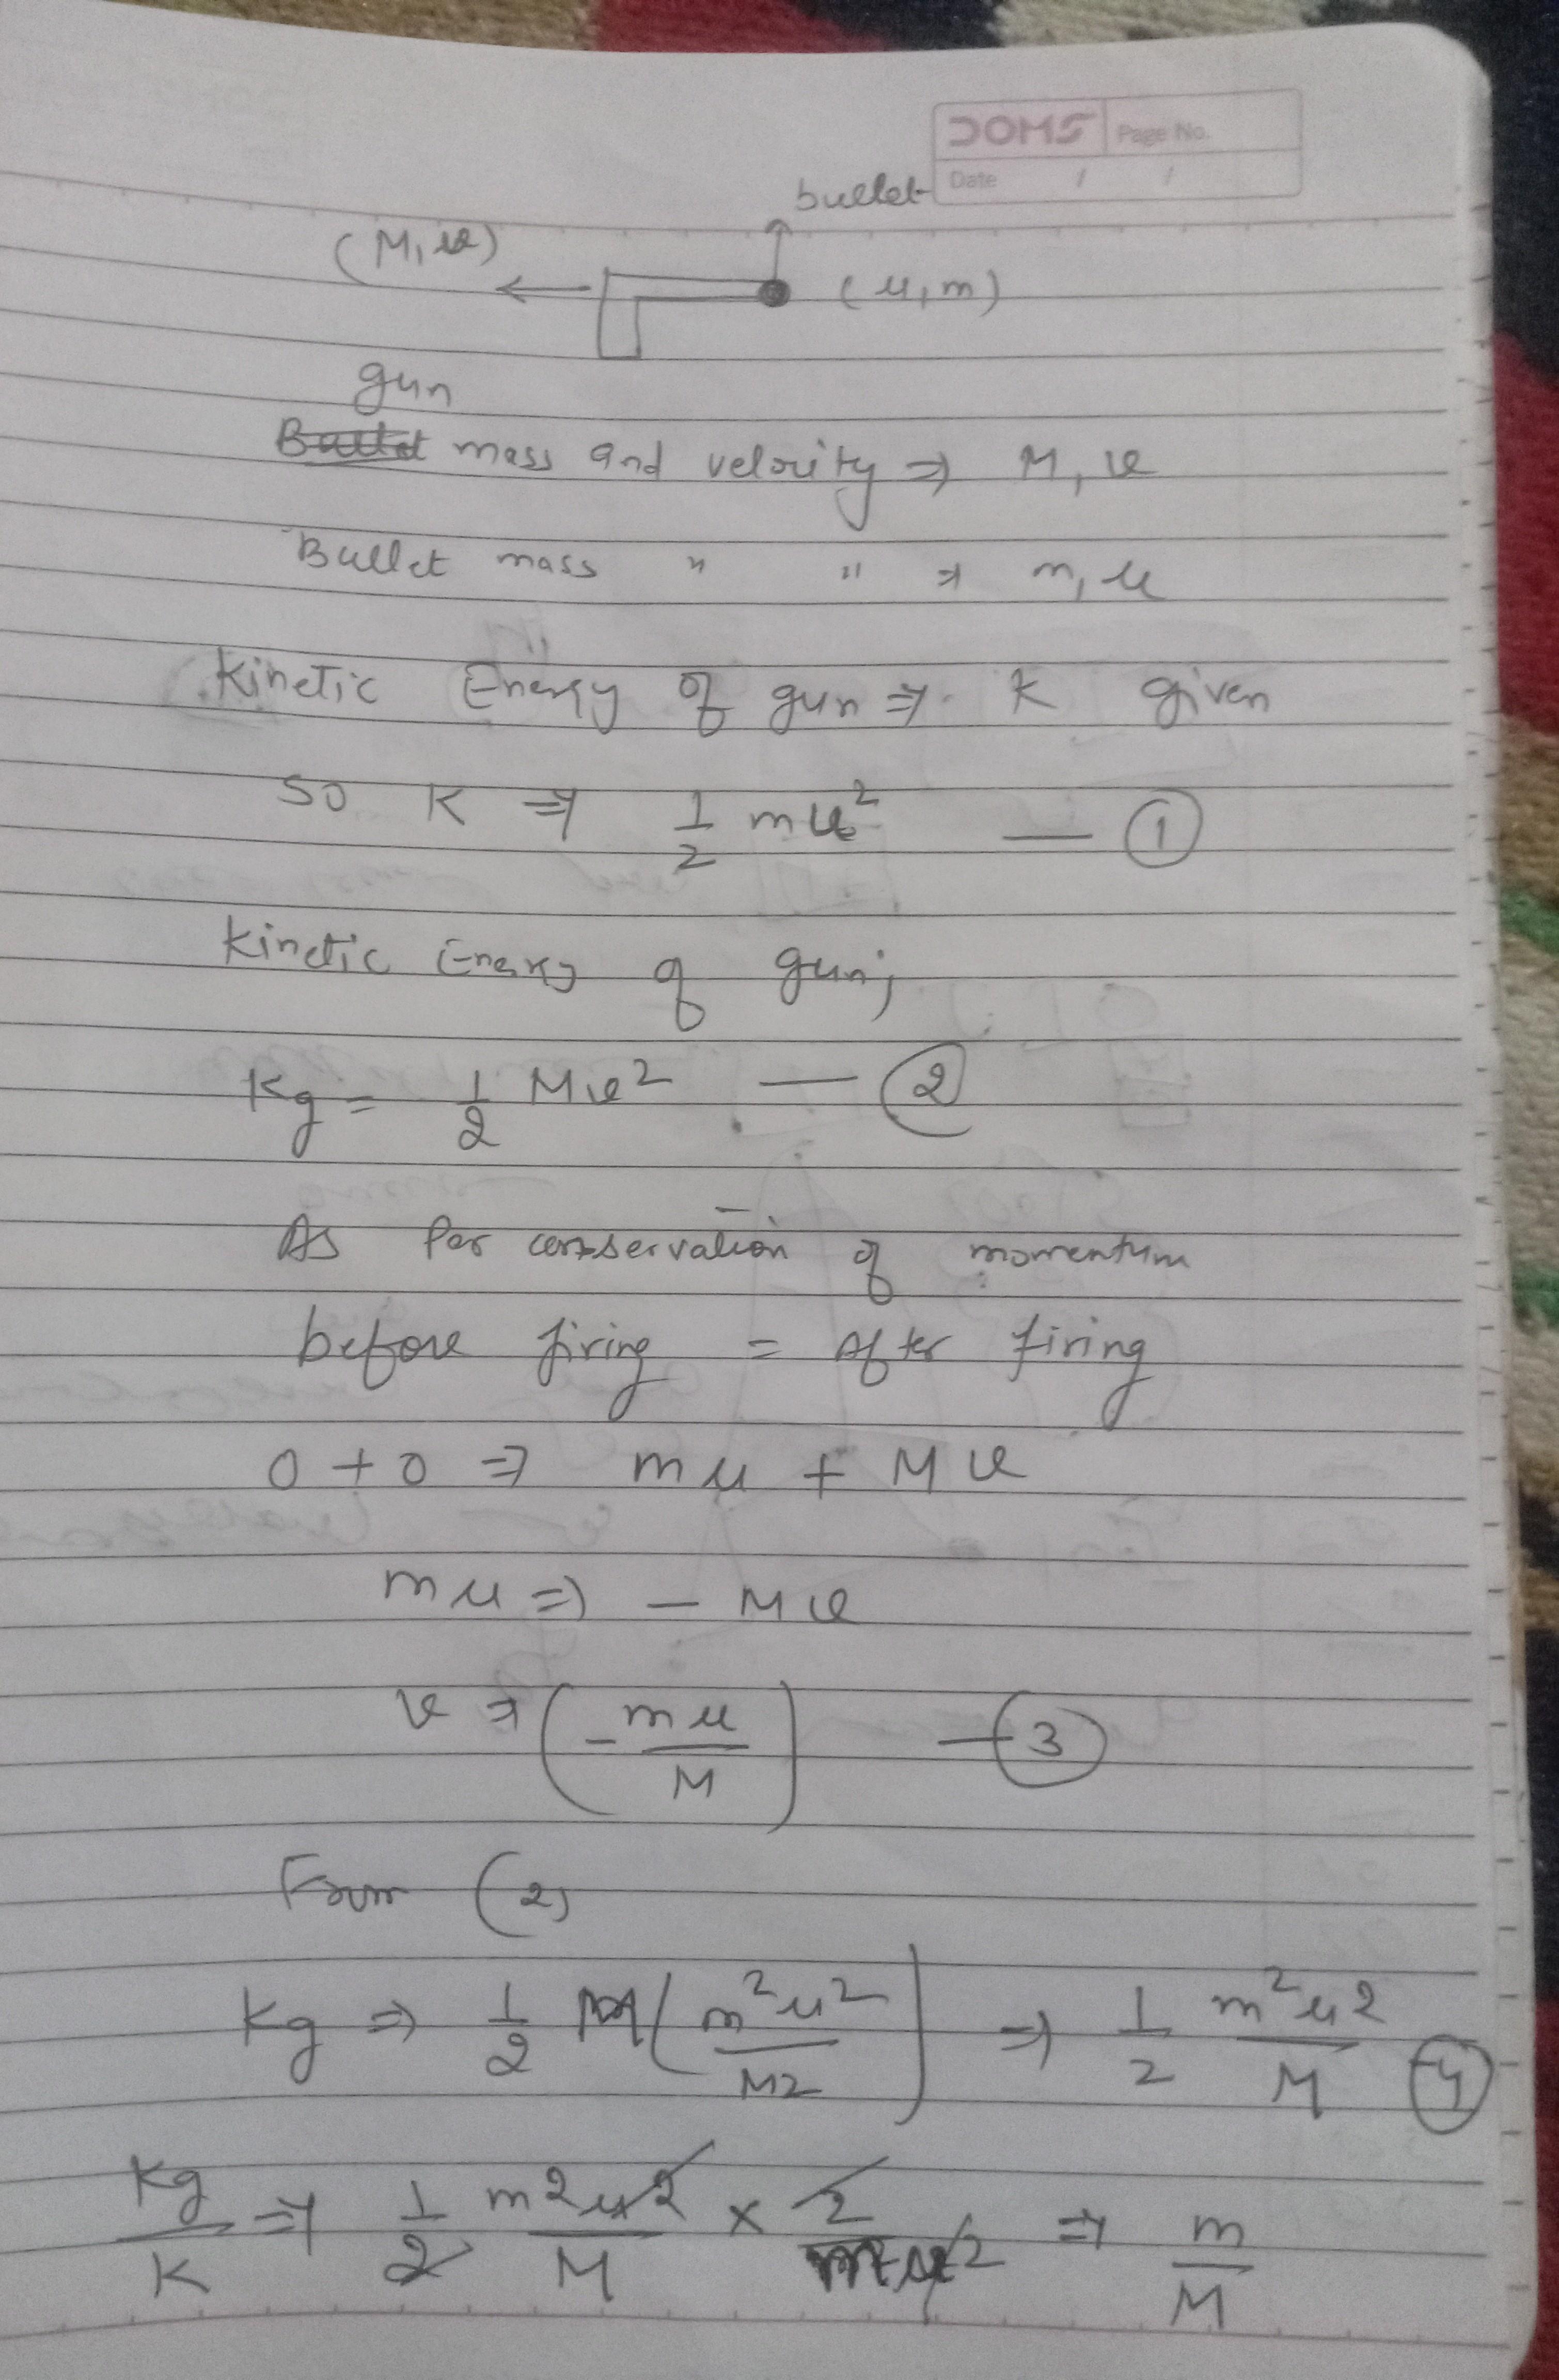 DOMS Page No.
Date / /
bullet
(M, v)
(u, m)
gun
mass and velocity ⇒ M, v
Bullet mass " " ⇒ m, u
Kinetic Energy of gun ⇒ K given
so K ⇒ 1/2 mu² — ①
Kinetic Energy of gun;
Kg = 1/2 Mv² — ②
As Per conservation of momentum
before firing = After firing
0 + 0 ⇒ mu + Mv
mu ⇒ - Mv
v ⇒ (- mu/M) — ③
From (2)
Kg ⇒ 1/2 M (m²u²/M2) ⇒ 1/2 m²u2/M ④
Kg/K ⇒ 1/2 m2u2/M × 2/mu2 ⇒ m/M